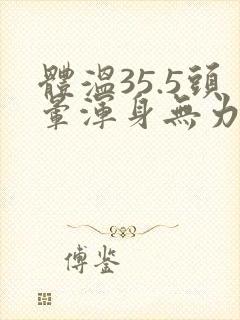 體溫35.5頭
暈渾身無力
傅鉴